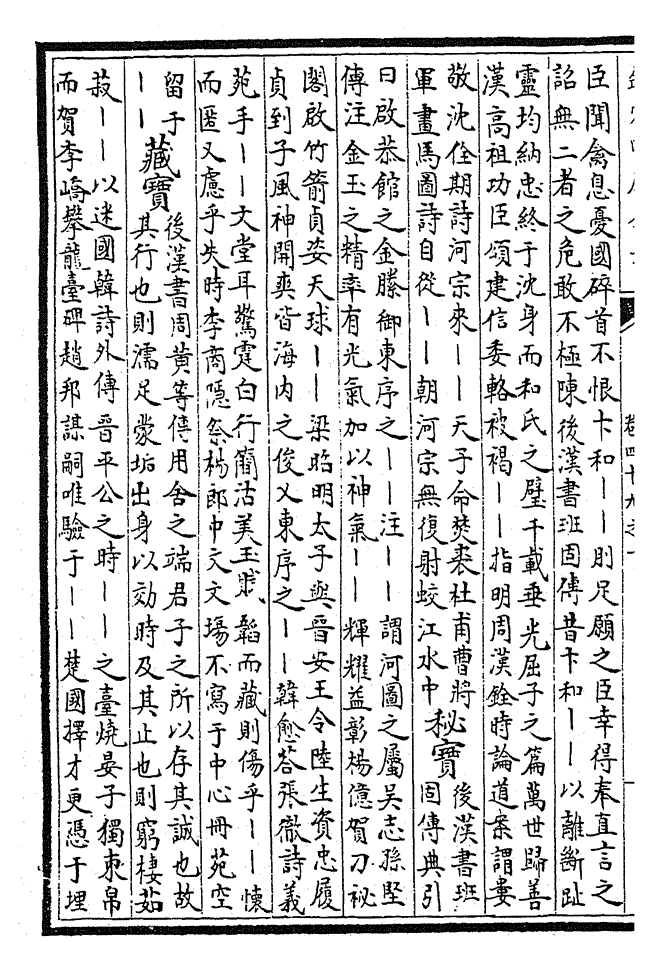 臣聞禽息憂國碎首不恨卞和——則足願之臣幸得奉直言之
詔無二者之危敢不極陳後漢書班固傳昔卞和——以離斷趾
靈均納忠終于沈身而和氏之璧千載垂光屈子之篇萬世歸善
漢高祖功臣頌建信委輅被褐——指明周漢銓時論道案謂婁
敬沈佺期詩河宗來——天子命焚裘杜甫曹將
軍畫馬圖詩自從——朝河宗無復射蛟江水中
秘寶
後漢書班
固傳典引
曰啟恭館之金縢御東序之——注——謂河圖之屬吳志孫堅
傳注金玉之精率有光氣加以神氣——輝耀益彰楊億賀刀祕
閣啟竹箭貞姿天球——梁昭明太子與晉安王令陸生資忠履
貞到子風神開爽皆海内之俊乂東序之——韓愈荅張徹詩義
苑手——文堂耳驚霆白行簡沽美玉賦 韜而藏則傷乎——懷
而匿又慮乎失時李商隱祭楊郎中文文場不寫于中心冊苑空
留于
——
藏寶
後漢書周黃等傳用舍之端君子之所以存其誠也故
其行也則濡足蒙垢出身以効時及其止也則窮棲茹
菽——以迷國韓詩外傳晉平公之時——之臺燒晏子獨束帛
而賀李嶠攀龍臺碑趙邦謀嗣唯驗于——楚國擇才更憑于埋